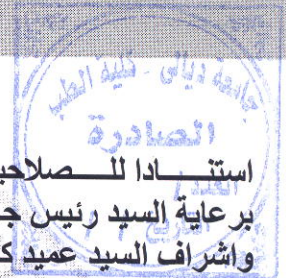 جامعة ديالى - كلية الطب
الصادرة
العدد
التاريخ
استنادا للصلاحي
برعاية السيد رئيس ج
واشراف السيد عميد ك